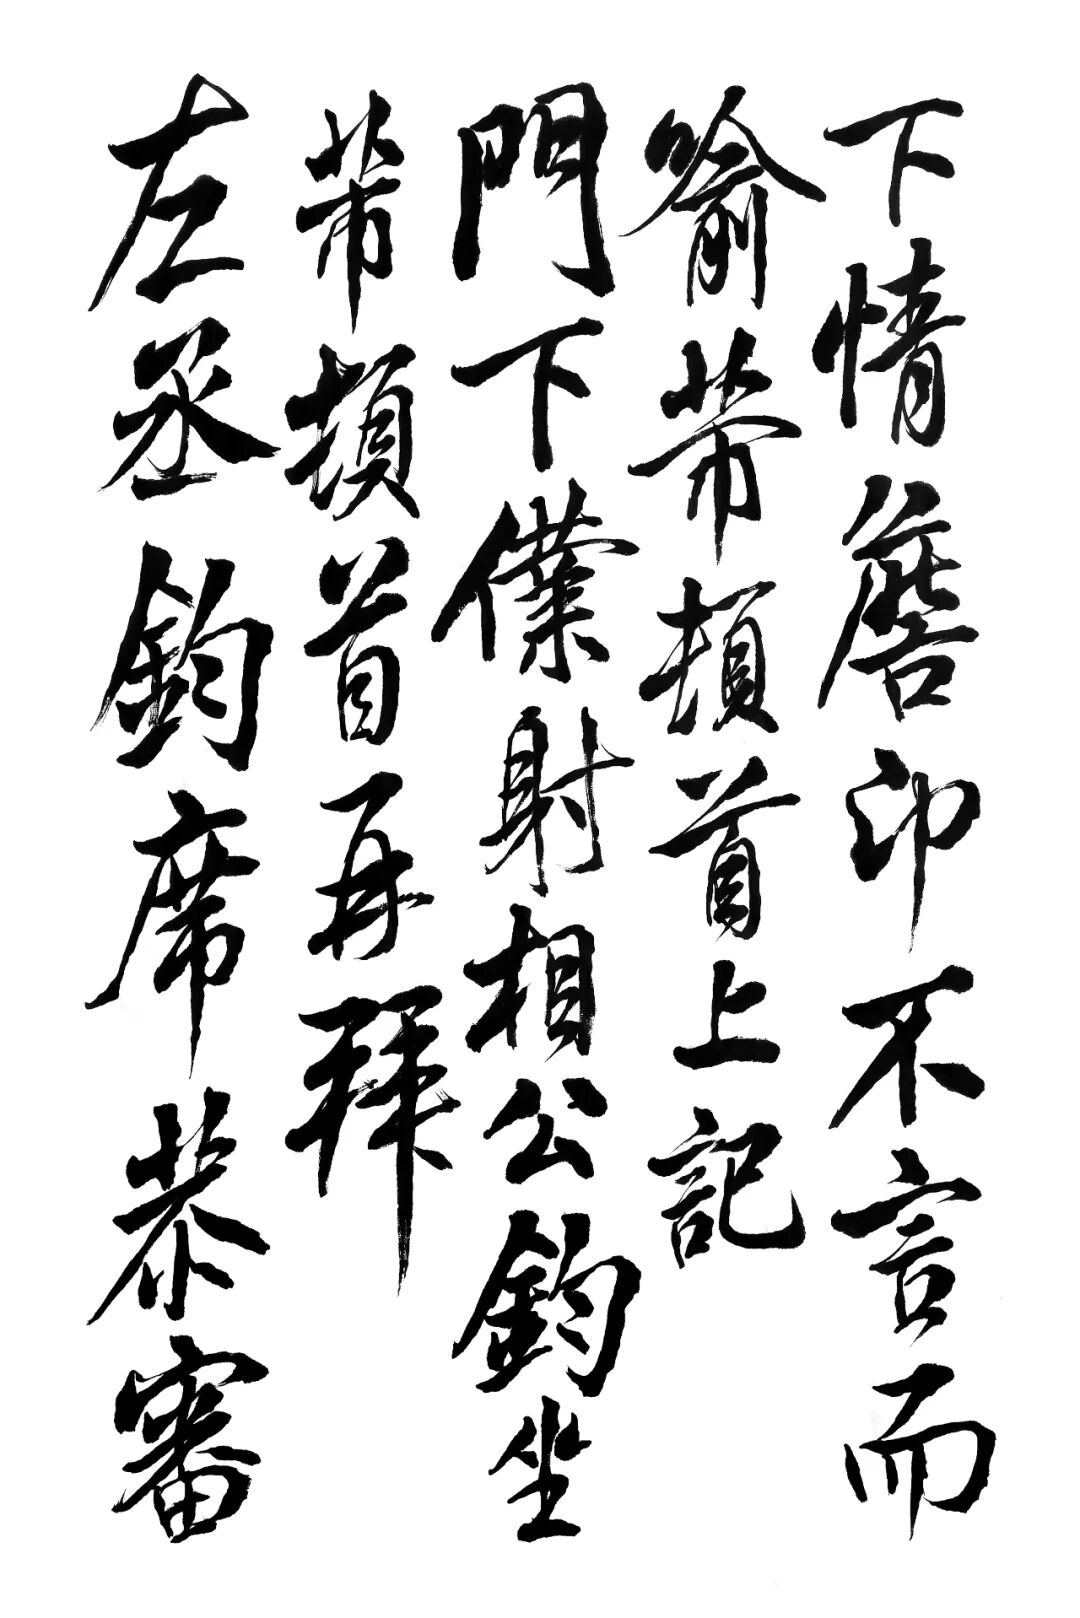 下情詹卬不言而
喻芾頓首上記
門下僕射相公鈞坐
芾頓首再拜
左丞鈞席恭審